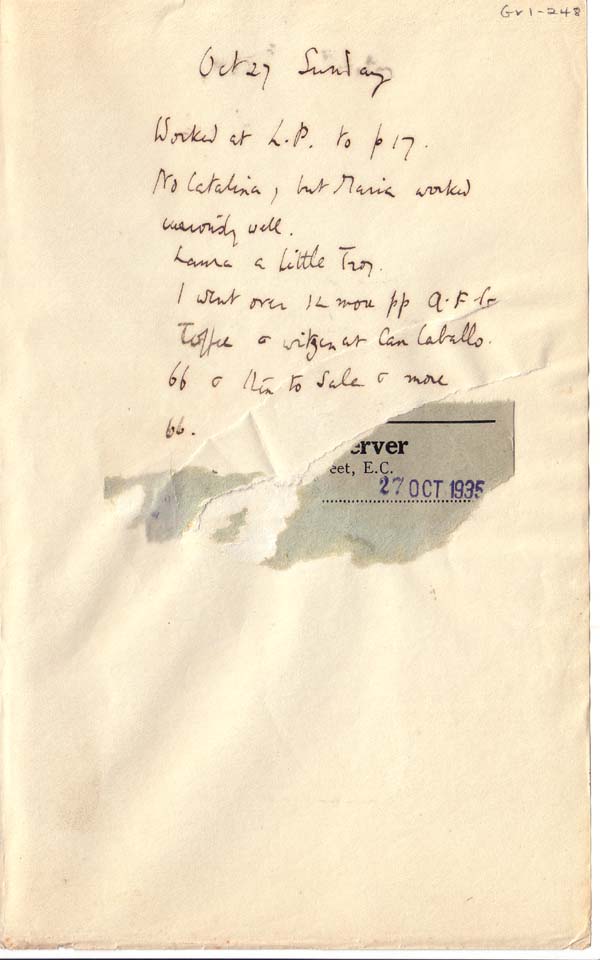 Gr1-248
Oct 27 Sunday
Worked at L.P. to p 17.
No Catalina, but Maria worked
well.
Laura a little Troy.
I went over 12 more pp Q.F.G
Toffee & at Can Caballo.
66 & Rín to Sala & more
66.
erver
eet, E.C.
27 OCT 1935